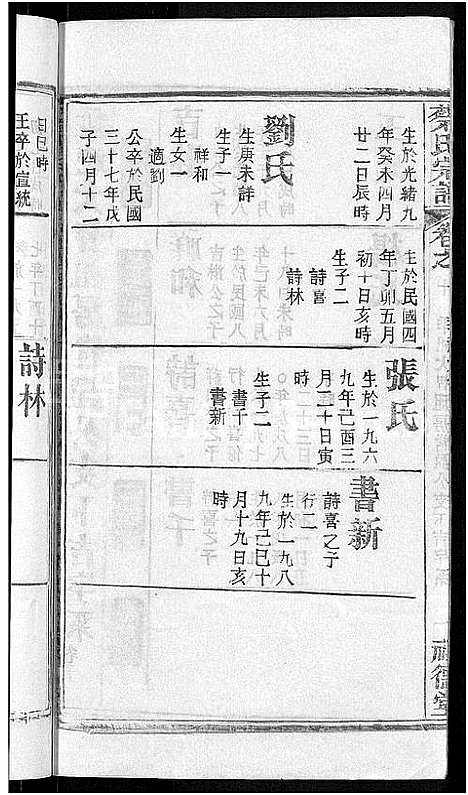 宗譜
卷之
生於光緒九
年癸未四月
廿二日辰時
劉氏
生庚未詳
生子一
祥和
生女一
適劉
公卒於民國
三十七年戊
子四月十二
生於民國四
年丁卯五月
初十日亥時
生子二
詩喜
詩林
張氏
生於一九六
九年己酉三
月二十日寅
時
生子二
書千
書新
書新
詩喜之子
行二
生於一九八
九年己巳十
月十九日亥
時
日巳時
王卒於宣統
詩林